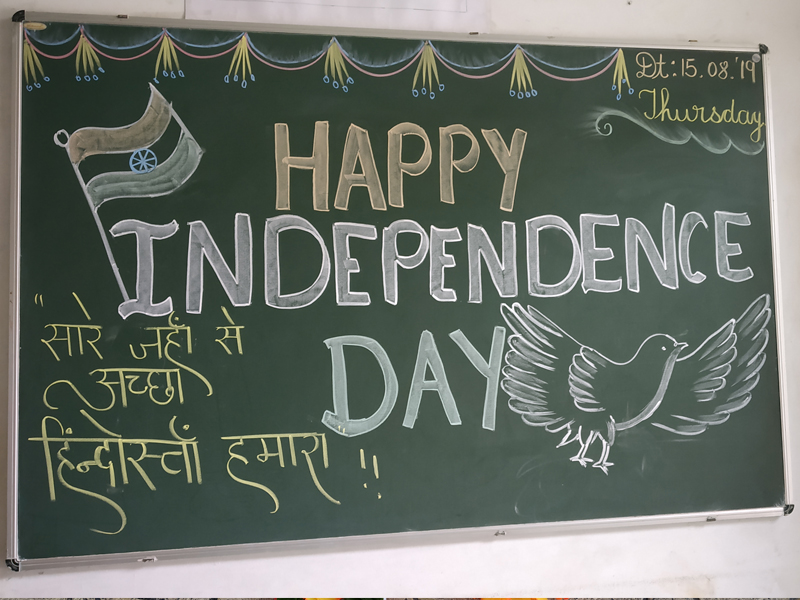 Dt: 15.08.'19
Thursday
HAPPY
INDEPENDENCE
DAY
"सारे जहाँ से
अच्छा
हिंन्दोस्ताँ हमारा" !!